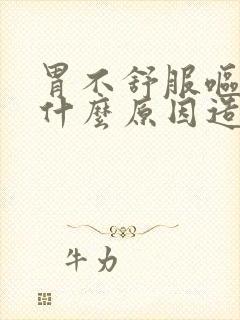 胃不舒服嘔
什麼原因造
牛力